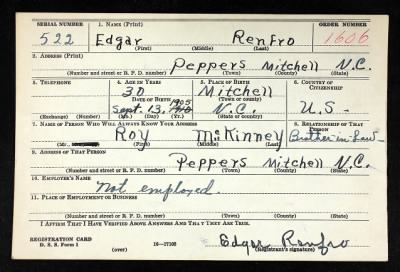 SERIAL NUMBER 1. NAME (Print) ORDER NUMBER
522 Edgar Renfro 1606
(First) (Middle) (Last)
2. ADDRESS (Print)
Peppers Mitchell N.C.
(Number and street or R. F. D. number) (Town) (County) (State)
3. TELEPHONE 4. AGE IN YEARS 5. PLACE OF BIRTH 6. COUNTRY OF CITIZENSHIP
30 Mitchell
DATE OF BIRTH (Town or county)
1905
Sept. 13, N.C. U.S-
(Exchange) (Number) (Mo.) (Day) (Yr.) (State or country)
7. NAME OF PERSON WHO WILL ALWAYS KNOW YOUR ADDRESS 8. RELATIONSHIP OF THAT PERSON
Roy McKinney Brother-in-law-
(Mr. (First) (Middle) (Last)
9. ADDRESS OF THAT PERSON
Peppers Mitchell N.C.
(Number and street or R. F. D. number) (Town) (County) (State)
10. EMPLOYER'S NAME
Not employed.
11. PLACE OF EMPLOYMENT OR BUSINESS
(Number and street or R. F. D. number) (Town) (County) (State)
I AFFIRM THAT I HAVE VERIFIED ABOVE ANSWERS AND THAT THEY ARE TRUE.
REGISTRATION CARD
D. S. S. Form 1 16—17105 Edgar Renfro
(over) (Registrant's signature)